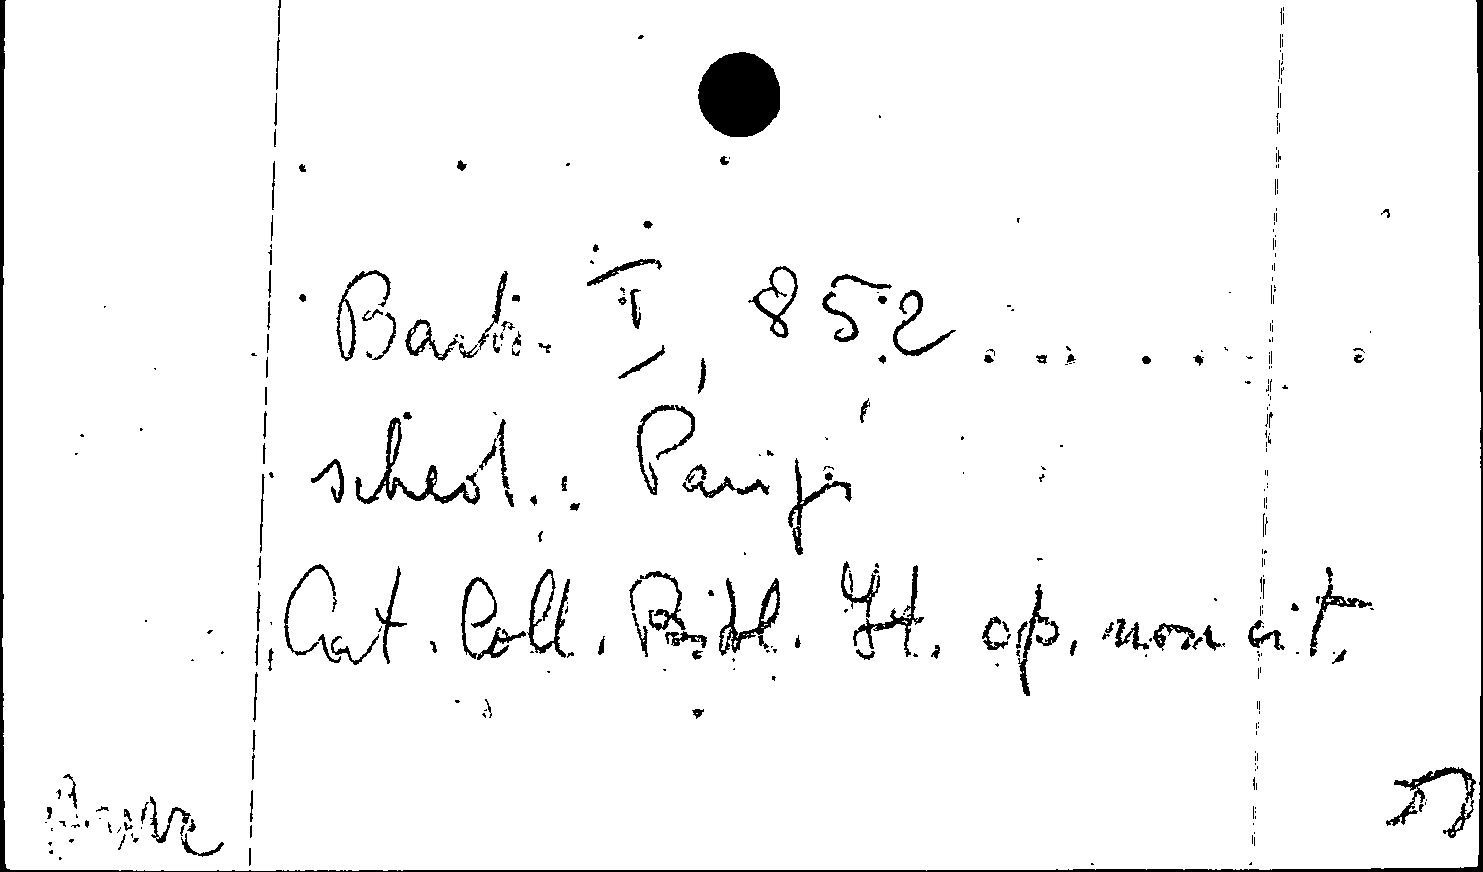 Barb. I, 852
sched.: Parigi
Cat. Coll. Bibl. It. op. non cit.